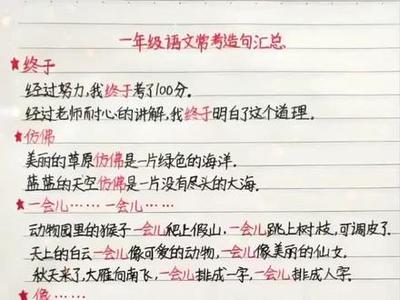 一年级语文常考造句汇总
★终于
经过努力,我终于考了100分.
经过老师耐心的讲解,我终于明白了这个道理.
★仿佛
美丽的草原仿佛是一片绿色的海洋.
蓝蓝的天空仿佛是一片没有尽头的大海.
★一会儿……一会儿……
动物园里的猴子一会儿爬上假山,一会儿跳上树枝,可调皮了.
天上的白云一会儿像可爱的动物,一会儿像美丽的仙女.
秋天来了,大雁向南飞,一会儿排成一字,一会儿排成人字.
★像……